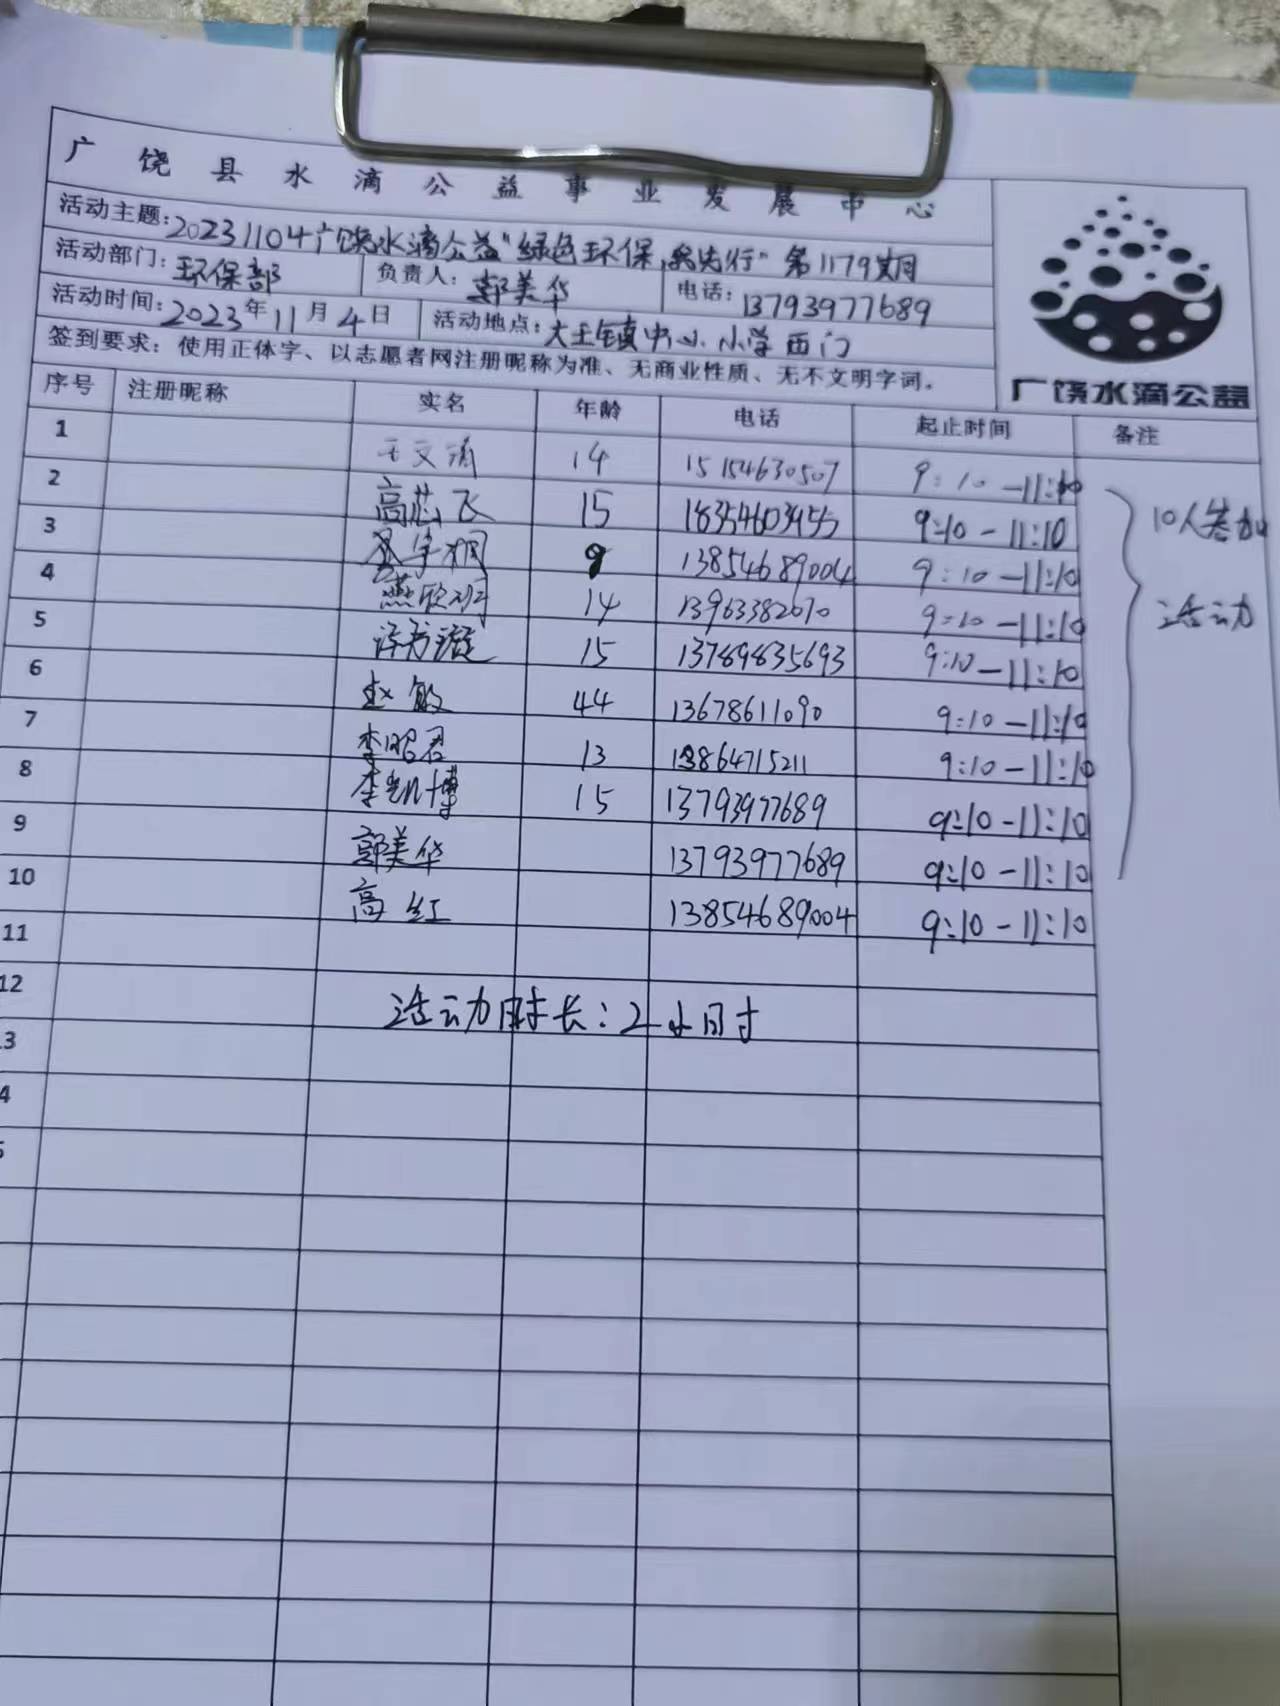 广饶县水滴公益事业发展中心
活动主题:20231104广饶水滴公益"绿色环保,我先行"第1179期
活动部门:环保部 负责人:郭美华 电话:13793977689
活动时间:2023年11月4日 活动地点:大王镇中心小学西门
签到要求:使用正体字、以志愿者网注册昵称为准、无商业性质、无不文明字词。
广饶水滴公益
序号 注册昵称 实名 年龄 电话 起止时间 备注
1 王文清 14 15154630507 9:10-11:10
2 高芯飞 15 18354603455 9:10-11:10 10人参加
3 宇桐 9 13854689004 9:10-11:10
4 燕欣 14 13963382670 9:10-11:10 活动
5 15 13789835693 9:10-11:10
6 赵敏 44 13678611090 9:10-11:10
7 李昭君 13 13864715211 9:10-11:10
8 李凯博 15 13793977689 9:10-11:10
9 郭美华 13793977689 9:10-11:10
10 高红 13854689004 9:10-11:10
11
12 活动时长:2小时
3
4
5